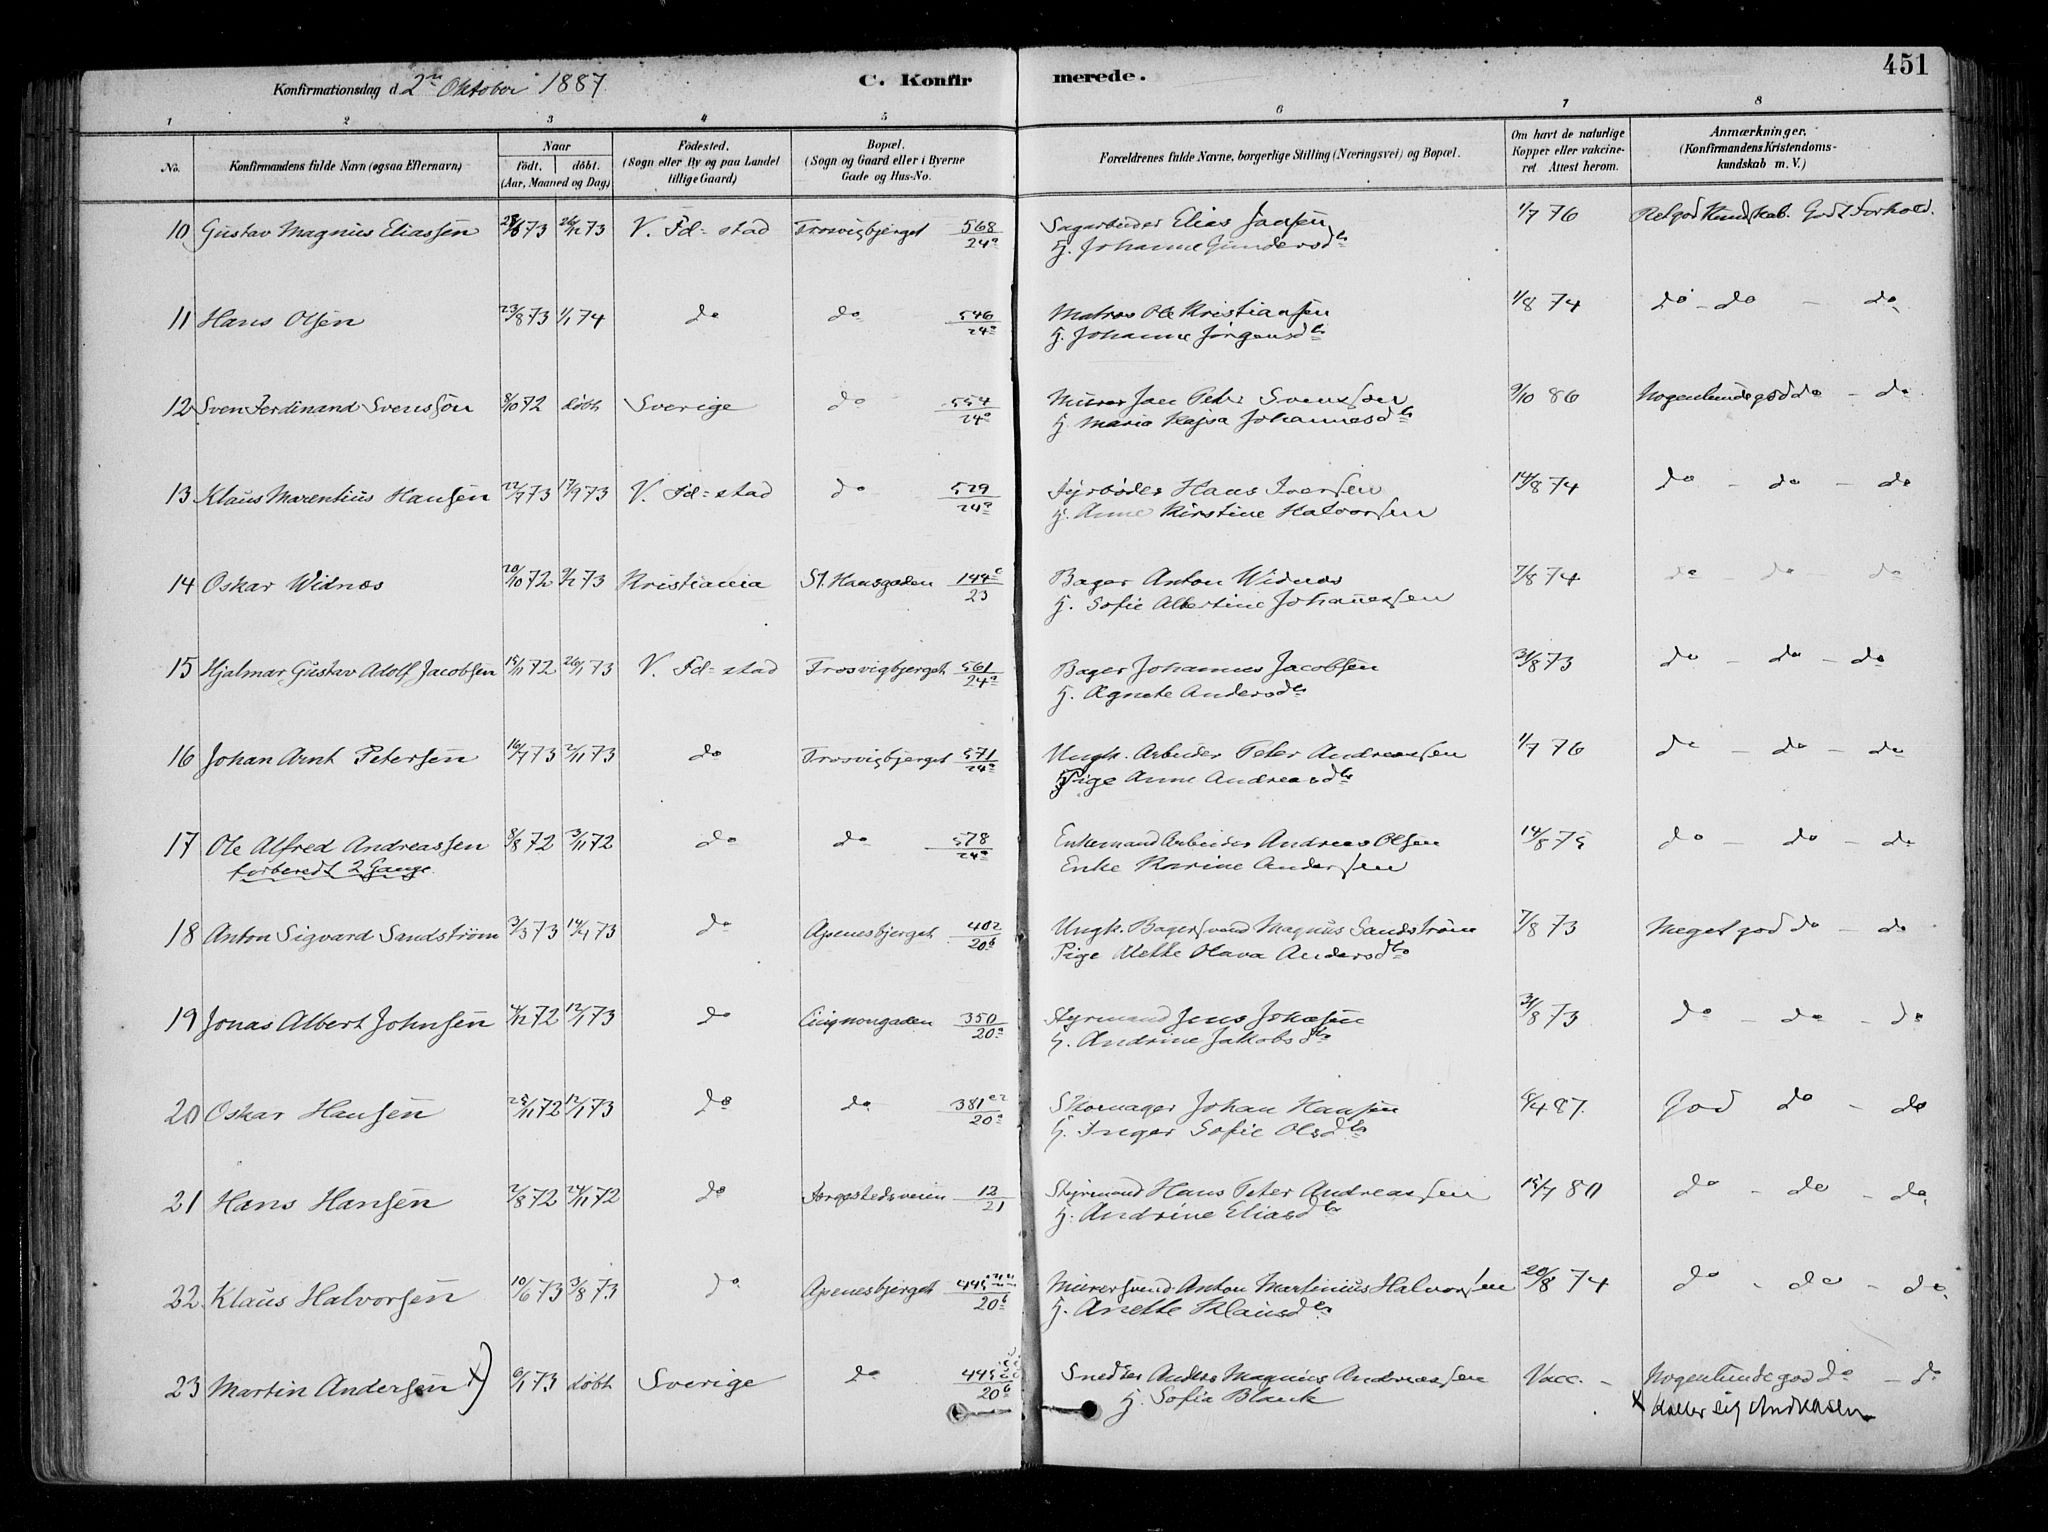 Konfirmationsdag d. 2den Oktober 1887.
C. Konfirmerede.
451
1 2 3 4 5 6 7 8
No.
Konfirmandens fulde Navn (ogsaa Efternavn)
Naar født. døbt. (Aar, Maaned og Dag)
Fødested. (Sogn eller By og paa Landet tillige Gaard)
Bopæl. (Sogn og Gaard eller i Byerne Gade og Hus-No.
Forældrenes fulde Navne, borgerlige Stilling (Næringsvei) og Bopæl.
Om havt de naturlige Kopper eller vakcineret. Attest herom.
Anmærkninger. (Konfirmandens Kristendomskundskab m. V.)
10 Gustav Magnus Eliassen 73 73 V. Fd=stad Trosvigbjerget 568/24a Sagarbeider Elias Jansen 1/7 76 Retgod Kundskab. Godt Forhold.
H. Johanne Gundersdtr
11 Hans Olsen 23/8 73 1/1 74 do do 546/24a Matros Ole Kristiansen 1/8 74 do - do - do
H. Johanne Jørgensdtr
12 Sven Ferdinand Svenssøn 8/10 72 døbt Sverige do 554/24a Murer Jan Peter Svensson 9/10 86 Nogenlunde god do - do
H. Maria Kajsa Johannesdtr
13 Klaus Marentius Hansen 22/7 73 17/9 73 V. Fd=stad do 529/24a Fyrbøder Hans Iversen 14/8 74 do - do - do
H. Anne Kirstine Halvorsen
14 Oskar Widnæs 20/10 72 73 Kristiania St. Hansgaden 144c/23 Bager Anton Widnæs 7/8 74 do - do - do
H. Sofie Albertine Johannessen
15 Hjalmar Gustav Adolf Jacobsen 15/11 72 26/1 73 V. Fd=stad Trosvigbjerget 561/24a Bager Johannes Jacobsen 31/8 73 do - do - do
H. Agnete Andersdtr
16 Johan Arnt Petersen 16/7 73 2/11 73 do Trosvigbjerget 571/24a Ungk. Arbeider Peter Andreassen 1/7 76 do - do - do
Pige Anne Andreasdtr
17 Ole Alfred Andreassen 8/8 72 3/11 72 do do 578/24a Enkemand Arbeider Andreas Olsen 14/8 75 do - do - do
forberedt 2 Gange. Enke Karine Andersen
18 Anton Sigvard Sandstrøm 3/3 73 14/4 73 do Apenesbjerget 402/20b Ungk. Bagersvend Magnus Sandstrøm 7/8 73 Meget god do - do
Pige Mette Olava Andersdtr
19 Jonas Albert Johnsen 72 12/1 73 do Cicignongaden 350/20a Styrmand Jens Johnsen 31/8 73 do - do - do
H. Andrine Jakobsdtr
20 Oskar Hansen 25/11 72 12/1 73 do do 381/20a Skomager Johan Hansen 87. God do - do
H. Inger Sofie Olsdtr
21 Hans Hansen 2/8 72 24/11 72 do Færgestedsveien 12/21 Styrmand Hans Peter Andreassen 15/7 80 do - do - do
H. Andrine Eliasdtr
22 Klaus Halvorsen 10/6 73 3/8 73 do Apenesbjerget 445/20b Murersvend Anton Martinius Halvorsen 20/8 74 do - do - do
H. Anette Klausdtr
23 Martin Andersen x) 6/1 73 døbt Sverige do 445/20b Snedker Anders Magnus Andreassen Vacc. - Nogenlunde god do - do
H. Sofia Blanck x kaller sig Andreasen